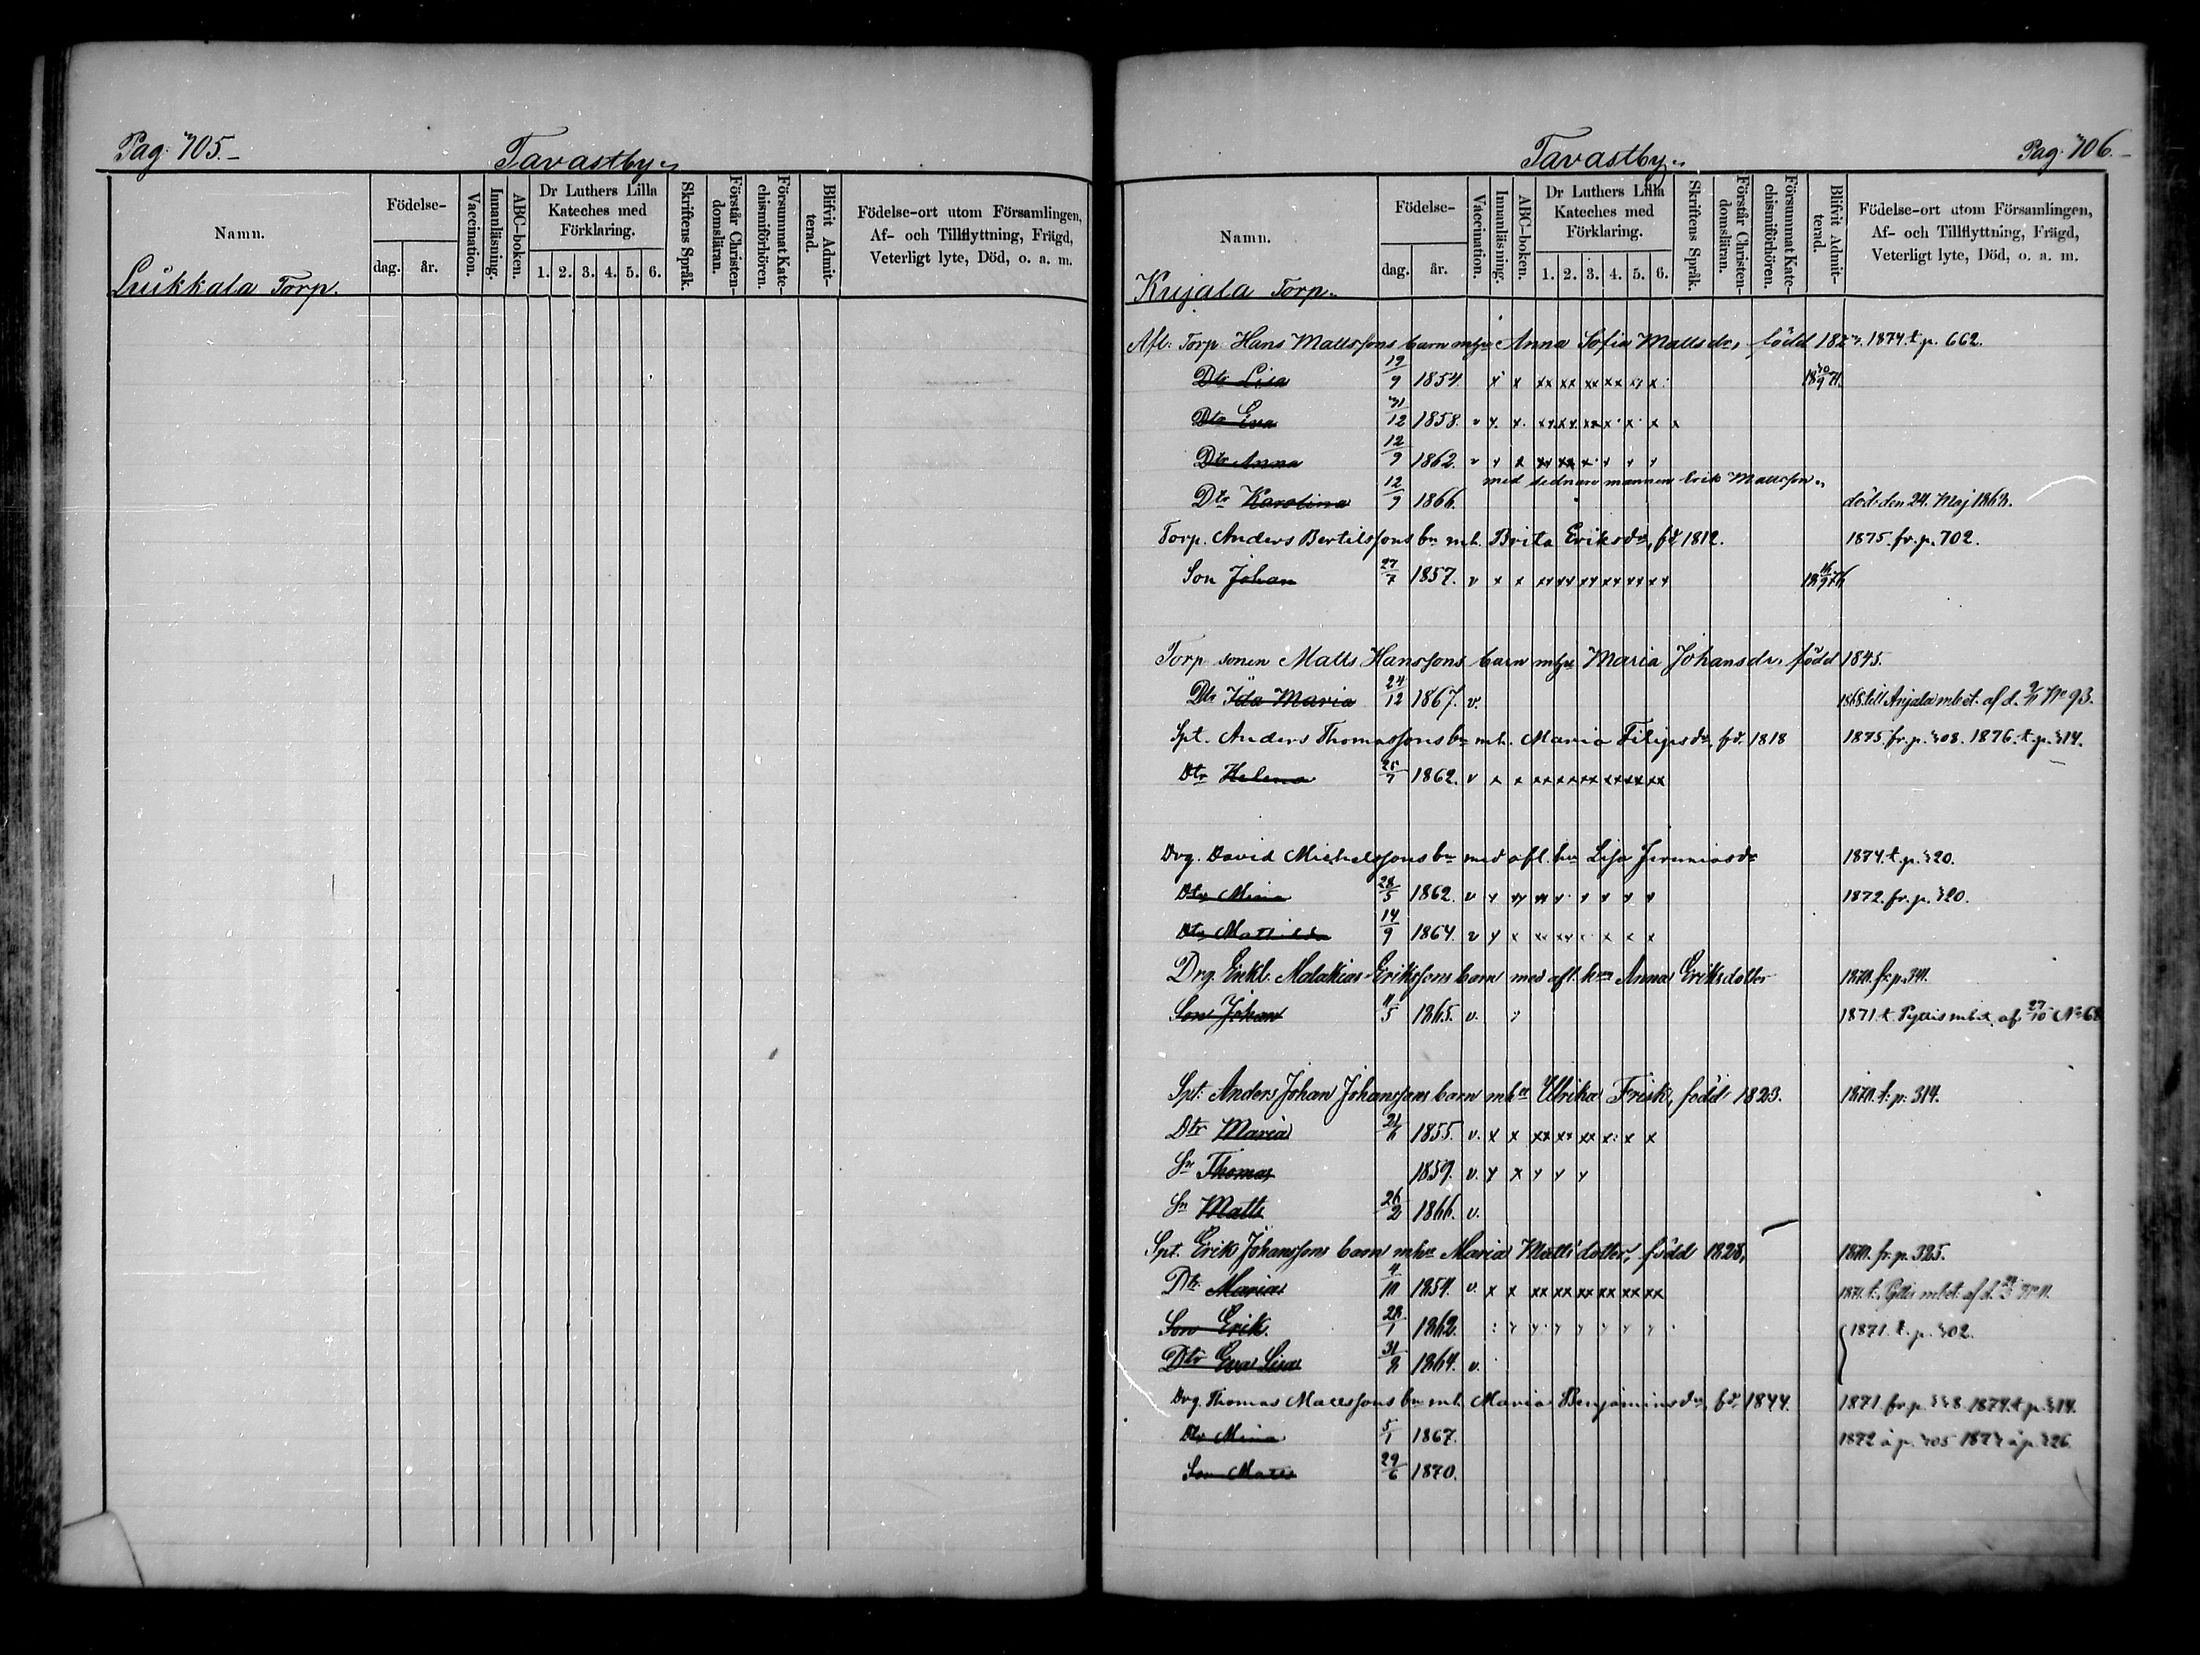 Pag. 705.
Tavastby
Namn.
Födelse-
dag.
år.
Vaccination.
Innanläsning.
ABC-boken.
Dr Luthers Lilla Kateches med Förklaring.
1. 2. 3. 4. 5. 6.
Skriftens Språk.
Förstår Christendomsläran.
Försummat Katechismiförhören.
Blifvit Admitterad.
Födelse-ort utom Församlingen, Af- och Tillflyttning, Frägd, Veterligt lyte, Död, o. a. m.
Luikkala Torp.
Tavastby
Pag. 706.
Namn.
Födelse-
dag.
år.
Vaccination.
Innanläsning.
ABC-boken.
Dr Luthers Lilla Kateches med Förklaring.
1. 2. 3. 4. 5. 6.
Skriftens Språk.
Förstår Christendomsläran.
Försummat Katechismiförhören.
Blifvit Admitterad.
Födelse-ort utom Församlingen, Af- och Tillflyttning, Frägd, Veterligt lyte, Död, o. a. m.
Kujala Torp.
Afl. Torp. Hans Mattssons barn mhu Anna Sofia Mattsdr, född 1874. t. p. 662.
Dtr Lisa 19/9 1854. x x xx xx xx xx x
Dtr Eva 31/12 1858. v x x xx xx xx x x x x
Dtr Anna 12/9 1862. v x x xx xx x x x x
med sednare mannen Erik Mattsson
Dtr Karolina 12/9 1866. död den 24. Maj 1868.
Torp. Anders Bertilssons bn mh. Brita Eriksdr, fd 1812. 1875. fr. p. 702.
Son Johan 27/7 1857. v x x xx xx xx xx xx xx
Torp sonen Matts Hanssons barn mhu Maria Johansdr, född 1845.
Dtr Ida Maria 24/12 1867. v. 1868. till Anjala mbet. af d. 9/11 No 93.
Spt. Anders Thomassons bn mh. Maria Filipsdr, fd. 1818 1875. fr. p. 708. 1876. t. p. 714.
Dtr Helena 25/7 1862. v x x xx xx xx xx xx xx
Drg. David Michelssons bn med afl. hu Lisa Jeremiasdr 1874. t. p. 720.
Dtr Mina 28/5 1862. v x xx xx x x x x x 1872. fr. p. 720.
Dtr Matilda 14/9 1864. v x x xx xx x x x
Drg. Enkl. Malakias Erikssons barn med afl. hu Anna Eriksdotter 1870. fr. p. 341.
Son Johan 4/5 1865. v. 1871. t. Pyttis mbet. af 27/10 No 68
Spt. Anders Johan Johanssons barn mhu Ulrika Frisk, född 1823. 1870. t. p. 314.
Dtr Maria 21/6 1855. v. x x xx xx xx x x x
Sn Thomas 1859. v. x x x x x
Sn Matts 26/2 1866. v.
Spt. Erik Johanssons barn mhu Maria Mattsdotter, född 1828, 1870. fr. p. 325.
Dtr Maria 4/10 1854. v. x x xx xx xx xx xx xx 1871. t. Pyttis mbet. af d.
Son Erik. 28/1 1862. 1871. t. p. 702.
Dtr Eva Lisa 31/8 1864. v.
Drg. Thomas Mattssons bn mh. Maria Benjaminsdr, fd. 1844. 1871. fr. p. 1874. t. p. 714.
Dtr Mina 5/1 1867. 1872 å p. 705 å p. 726.
Son Matts 29/6 1870.